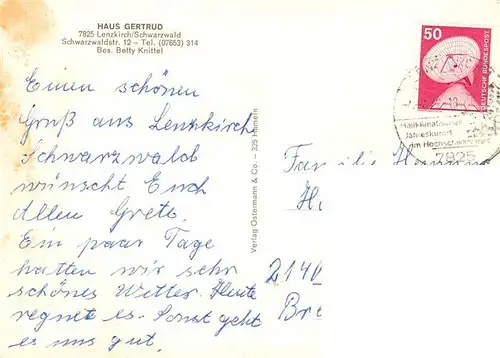 HAUS GERTRUD
7825 Lenzkirch/Schwarzwald
Schwarzwaldstr. 12 – Tel. (07653) 314
Bes. Betty Knittel
Einen schönen
Gruß aus Lenzkirch
Schwarzwald
wünscht Euch
Allen Grete.
Ein paar Tage
hatten wir sehr
schönes Wetter. Heute
regnet es. Sonst geht
es uns gut.
Verlag Ostermann & Co. – 325 Hameln
50
DEUTSCHE BUNDESPOST
Heilklimatischer
Jahreskurort
im Hochschwarzwald
7825
Familie
H
2140
Br